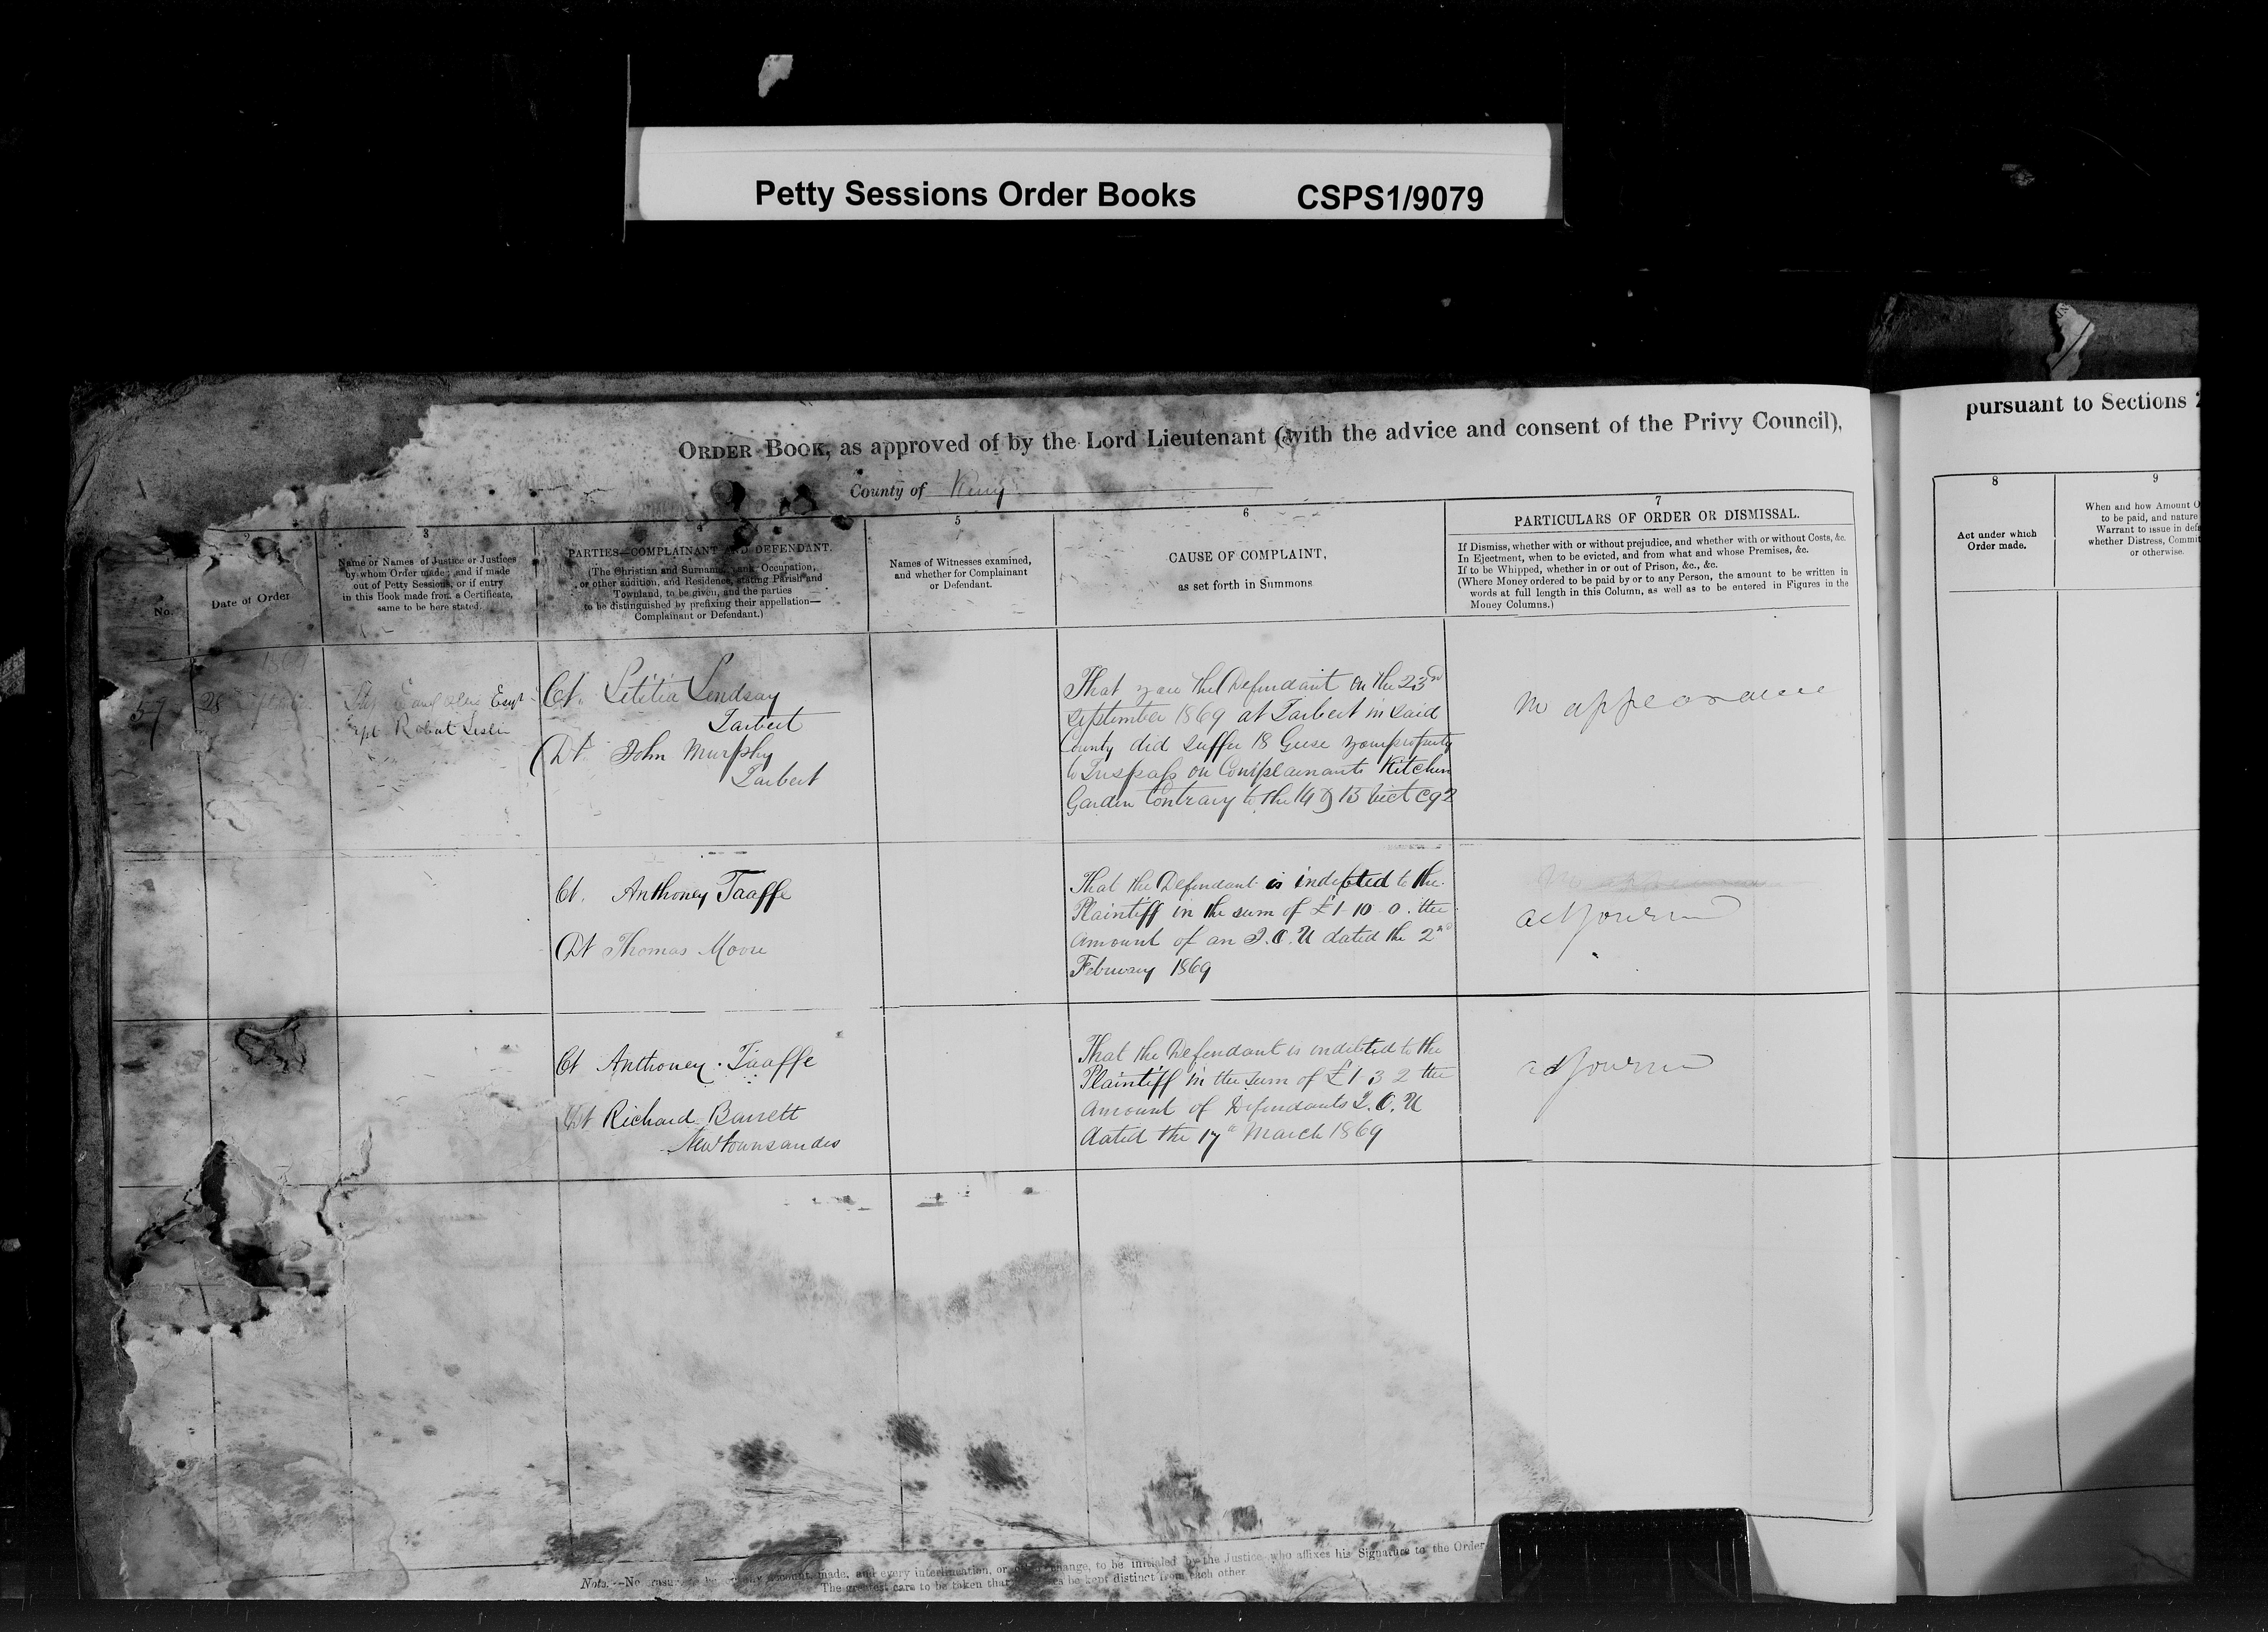 Petty Sessions Order Books CSPS1/9079
ORDER BOOK, as approved of by the Lord Lieutenant (with the advice and consent of the Privy Council),
pursuant to Sections
County of Kerry
No.
2
Date of Order
3
Name or Names of Justice or Justices
by whom Order made; and if made
out of Petty Sessions, or if entry
in this Book made from a Certificate,
same to be here stated.
4
PARTIES—COMPLAINANT AND DEFENDANT.
(The Christian and Surname, Rank, Occupation,
or other addition, and Residence, stating Parish and
Townland, to be given, and the parties
to be distinguished by prefixing their appellation—
Complainant or Defendant.)
5
Names of Witnesses examined,
and whether for Complainant
or Defendant.
6
CAUSE OF COMPLAINT,
as set forth in Summons
7
PARTICULARS OF ORDER OR DISMISSAL.
If Dismiss, whether with or without prejudice, and whether with or without Costs, &c.
In Ejectment, when to be evicted, and from what and whose Premises, &c.
If to be Whipped, whether in or out of Prison, &c., &c.
(Where Money ordered to be paid by or to any Person, the amount to be written in
words at full length in this Column, as well as to be entered in Figures in the
Money Columns.)
8
Act under which
Order made.
9
When and how Amount O
to be paid, and nature
Warrant to issue in def
whether Distress, Commit
or otherwise.
1869
57
28
Esqr
Robert Leslie
Ct. Letitia Lindsay
Tarbert
Dt John Murphy
Tarbert
That you the Defendant on the 23rd
September 1869 at Tarbert in said
County did suffer 18 Geese your property
to Trespass on Complainants Kitchen
Garden Contrary to the 14 & 15 Vict C92
no appearance
Ct. Anthoney Taaffe
Dt Thomas Moore
That the Defendant is indebted to the
Plaintiff in the sum of £1-10-0. the
Amount of an I.O.U dated the 2nd
February 1869
adjourned
Ct Anthoney Taaffe
Dt Richard Barrett
Newtownsandes
That the Defendant is indebted to the
Plaintiff in the sum of £1 3 2 the
Amount of Defendants I.O.U
dated the 17th March 1869
adjourned
Note.—No erasure to be on any account made, and every interlineation, or change, to be initialed by the Justice who affixes his Signature to the Order
The greatest care to be taken that be kept distinct from each other